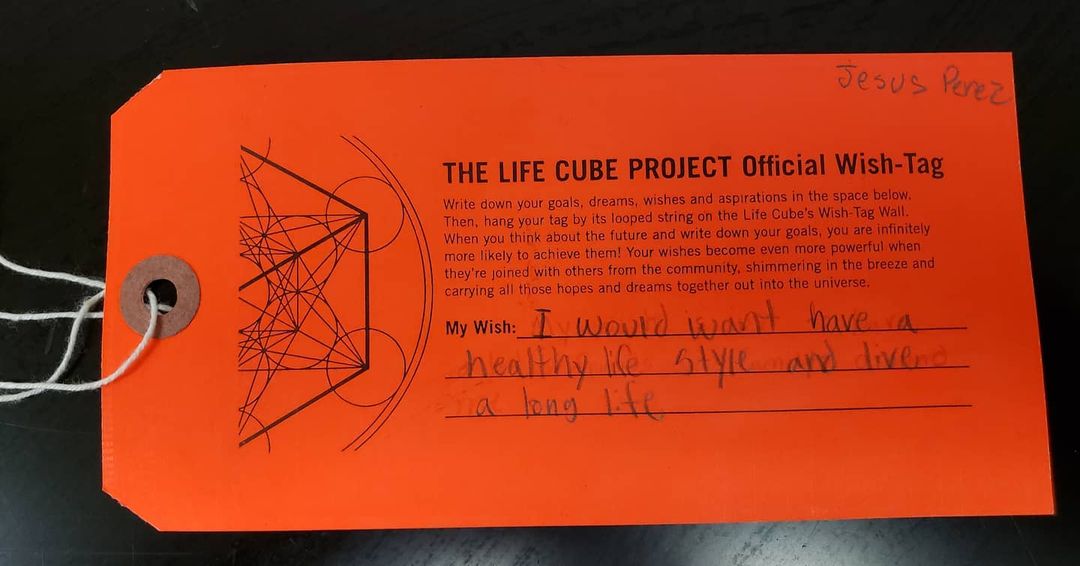 Jesus Perez
THE LIFE CUBE PROJECT Official Wish-Tag
Write down your goals, dreams, wishes and aspirations in the space below.
Then, hang your tag by its looped string on the Life Cube's Wish-Tag Wall.
When you think about the future and write down your goals, you are infinitely
more likely to achieve them! Your wishes become even more powerful when
they're joined with others from the community, shimmering in the breeze and
carrying all those hopes and dreams together out into the universe.
My Wish: I would want have a
healthy life style and
a long life